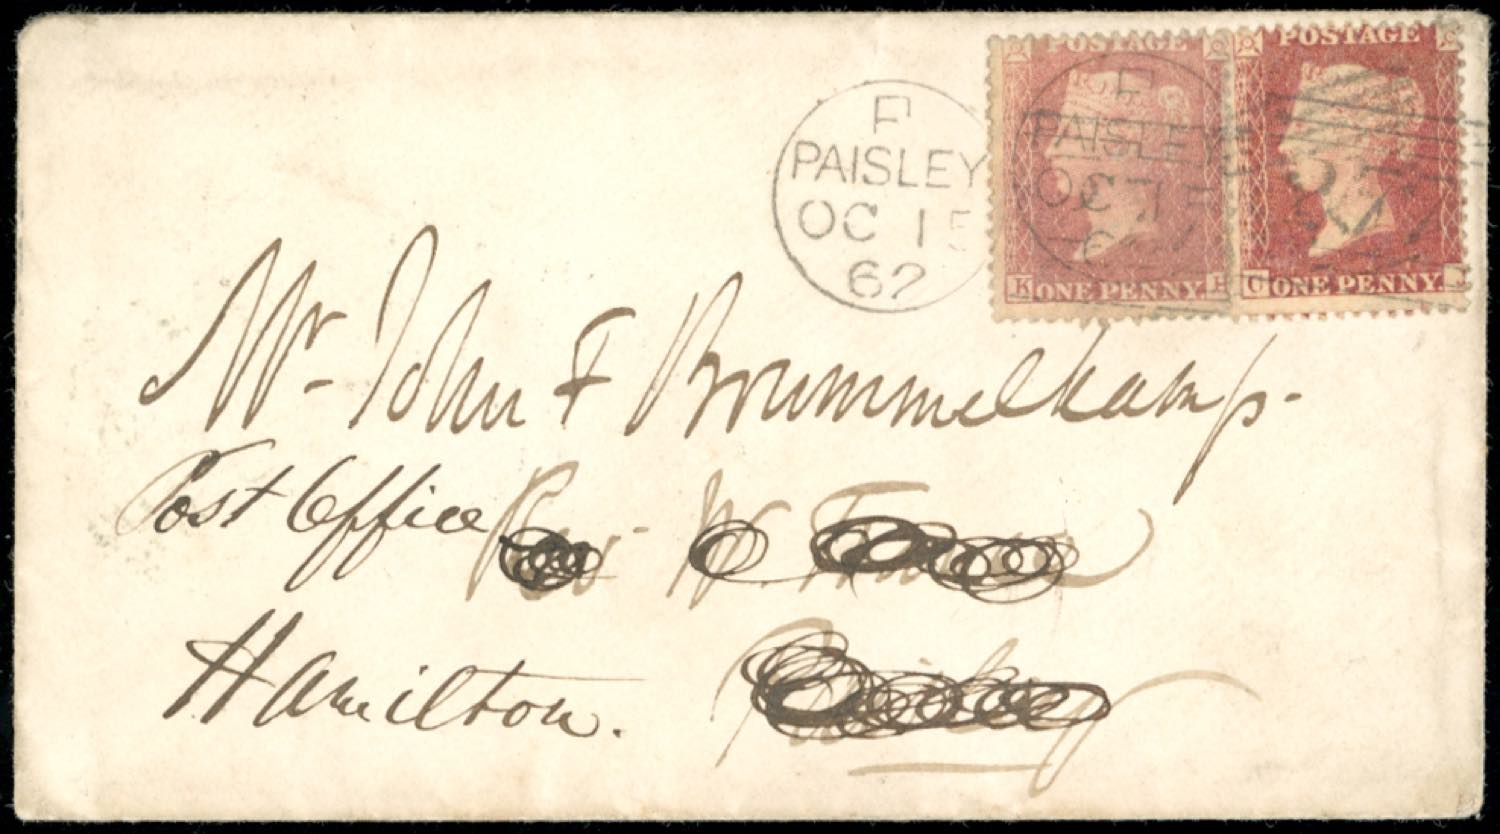 POSTAGE POSTAGE
K ONE PENNY. G ONE PENNY.
F
PAISLEY
OC 15
62
PAISLEY
OC 15
Mr. John F Brummelkamp.
Post Office Rev. W.
Hamilton. Paisley